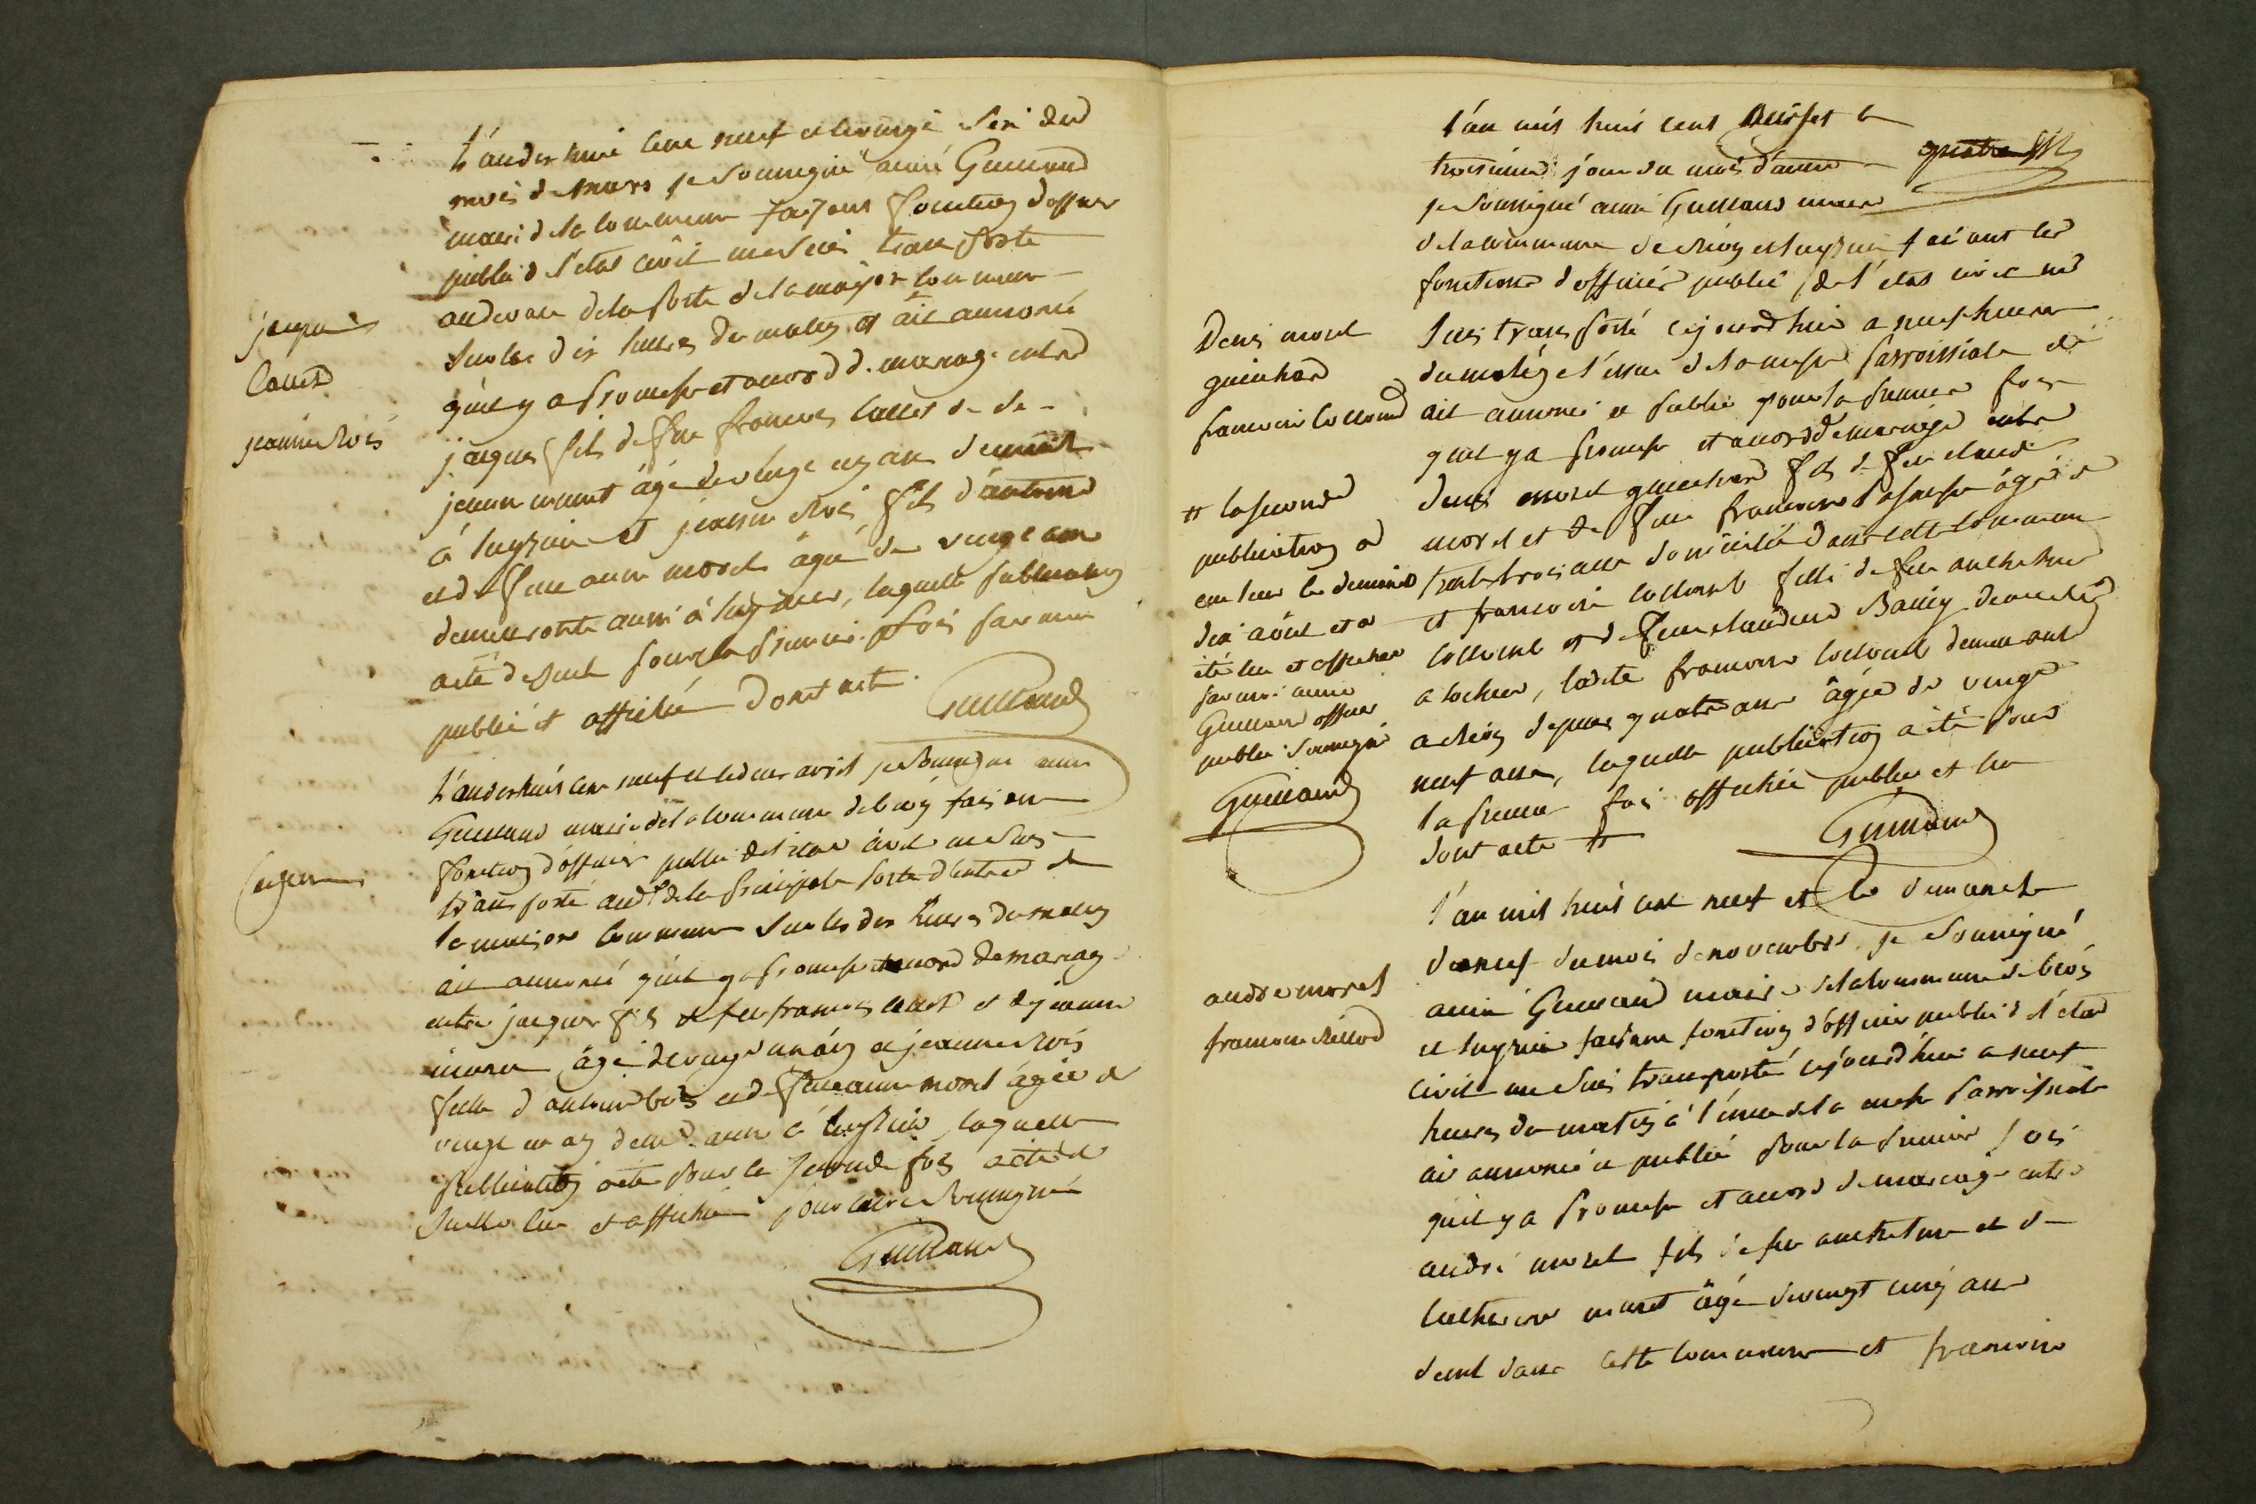 L'an dix huit cent neuf et le vingt six du
mois de mars je soussigné aimé Guilland
maire de la commune faisant fonction d'officier
public de l'état civil me suis transporté
au devant de la porte de la maison commune
jaques
sur les dix heures du matin et ait annoncé
Callet
qu'il y a promesse et accord de mariage entre
jeanne Bois
jaques fils de feu francois callet et de
jeanne maret âgé de vingt un ans demeurt
à lupieu et jeanne Bois fille d'antoine
et de feue aimé morel âgée de vingt ans
demeurante aussi à lupieu, laquelle publication
a été de suite pour la première fois par moi
publié et affiché Dont acte.
Guilland
L'an dix huit cent neuf et le deux avril je soussigné aimé
Guilland maire de la commune de béon faisant
fonction d'officier public de l'état civil me suis
transporté audt de la principale porte d'entrée de
la maison commune sur les dix heures du matin
ait annoncé qu'il y a promesse et accord de mariage
entre jacques fils de feu francois callet et de jeanne
maret âgé de vingt un ans et jeanne Bois
fille d'antoine bois et de feue aimé morel âgée de
vingt un ans à lupieu, laquelle
publication a été pour la seconde fois a été de
suite lue et affichée soussigné
Guilland
l'an mil huit cent neuf et le
troisième jour du mois d'aout
je soussigné aimé Guilland maire
de la commune de Béon et lupieu faisant les
fonctions d'officier public de l'état civil me
Denis morel
suis transporté cejourd'hui a neuf heures
guichard
du matin à l'issue de la messe parroissiale et
francoise collomb
ait annoncé et publié pour la premiere fois
qu'il y a promesse et accord de mariage entre
denis morel guichard fils de feu claude
# la seconde
morel et de feue francoise âgé de
publication a
trente trois ans domicilié dans cette commune
eu lieu le dimanche
et francoise collomb fille de feu anthelme
dix août et a
collomb et de feue claudine Bailly
été lue et affichée
a lochieu, ladite francoise collomb demeurante
par moi aimé
a Béon depuis quatre ans âgée de vingt
Guilland officier
neuf ans, laquelle publication a été pour
public soussigné
la premiere fois affichée publiée et lue
Guilland
dont acte #
Guilland
l'an mil huit cent neuf et le dimanche
dixneuf du mois de novembre je soussigné
andré morel
aimé Guilland maire de la commune de béon
et lupieu faisant fonction d'officier public de l'état
civil me suis transporté cejourd'hui a neuf
heures du matin à l'issue de la messe parroissiale
ai annoncé et publié pour la premiere fois
qu'il y a promesse et accord de mariage entre
andré morel fils de feu anthelme et de
catherine maret âgé de vingt cinq ans
demt dans cette commune et francoise